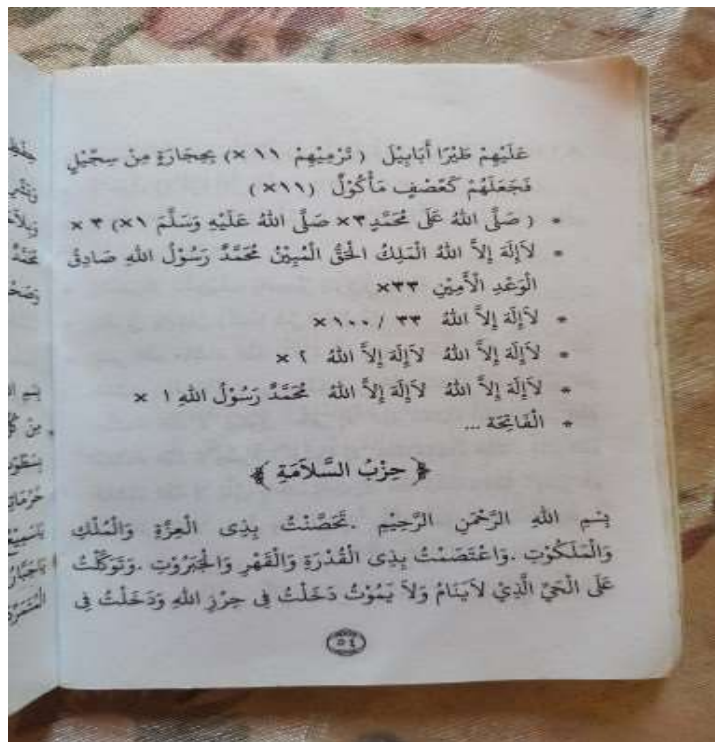 عَلَيْهِمْ طَيْرًا أَبَابِيْلَ ( تَرْمِيْهِمْ ١١ ×) بِحِجَارَةٍ مِنْ سِجِّيْلٍ
فَجَعَلَهُمْ كَعَصْفٍ مَأْكُوْلٌ (١١×)
* ( صَلَّى اللهُ عَلَى مُحَمَّدٍ٣× صَلَّى اللهُ عَلَيْهِ وَسَلَّمَ ١×) ٣ ×
* لَاَإِلَهَ إِلاَّ اللهُ الْمَلِكُ الْحَقُّ الْمُبِيْنُ مُحَمَّدٌ رَسُوْلُ اللهِ صَادِقُ
الْوَعْدِ الْأَمِيْنِ ٣٣×
* لَاَإِلَهَ إِلاَّ اللهُ ٣٣ / ١٠٠×
* لَاَإِلَهَ إِلاَّ اللهُ لَاَإِلَهَ إِلاَّ اللهُ ٢ ×
* لَاَإِلَهَ إِلاَّ اللهُ لَاَإِلَهَ إِلاَّ اللهُ مُحَمَّدٌ رَسُوْلُ اللهِ ١ ×
* الْفَاتِحَة ...
﴿ حِزْبُ السَّلاَمَةِ ﴾
بِسْمِ اللهِ الرَّحْمَنِ الرَّحِيْمِ .تَحَصَّنْتُ بِذِى الْعِزَّةِ وَالْمُلْكِ
وَالْمَلَكُوْتِ .وَاعْتَصَمْتُ بِذِى الْقُدْرَةِ وَالْقَهْرِ وَالْجَبَرُوْتِ .وَتَوَكَّلْتُ
عَلَى الْحَيِّ الَّذِيْ لَايَنَامُ وَلاَ يَمُوْتُ دَخَلْتُ فِى حِرْزِ اللهِ وَدَخَلْتُ فِى
٥٤